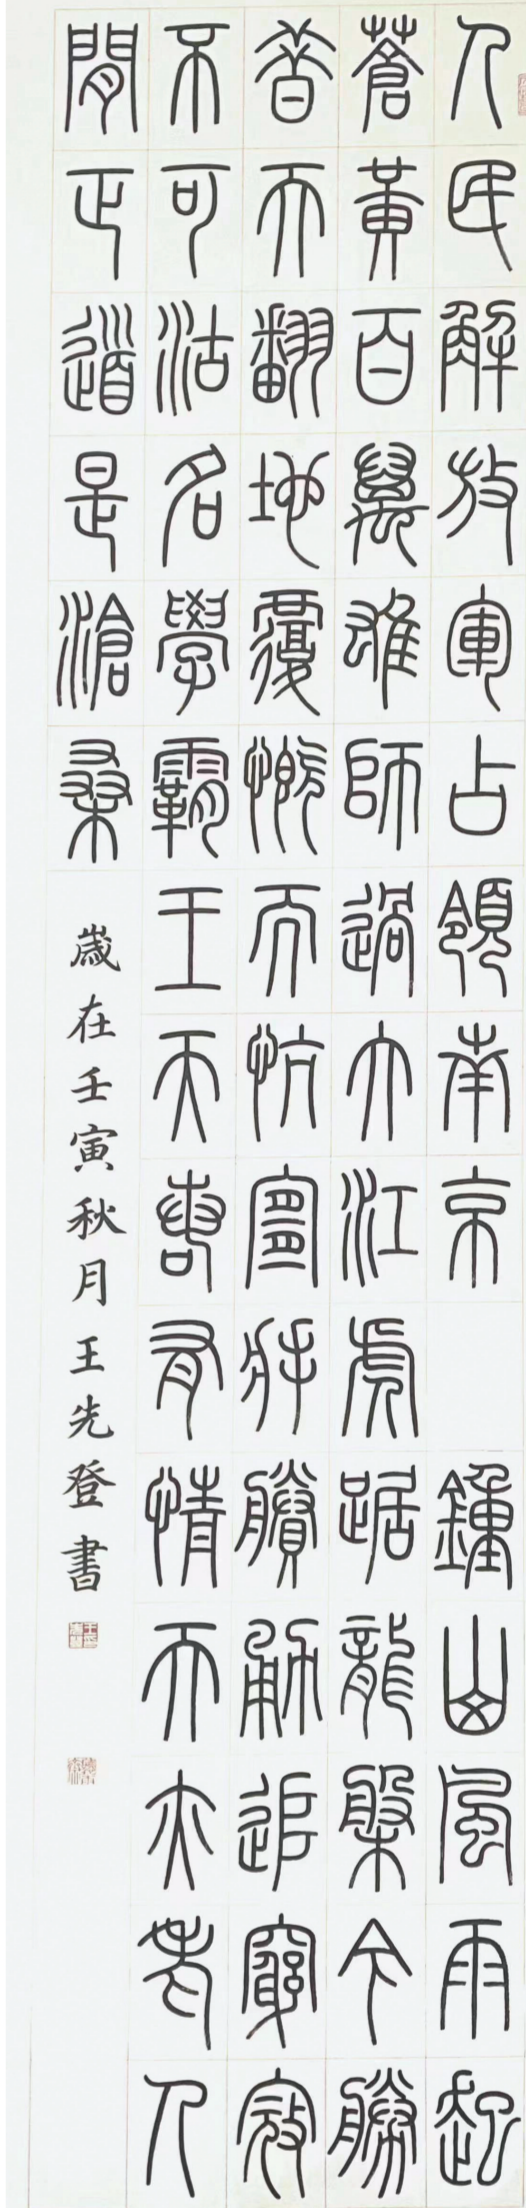 人民解放軍占領南京 鍾山風雨起
蒼黃百萬雄師過大江虎踞龍槃今勝
昔天翻地覆慨而忼宜將賸勇追窮寇
不可沽名學霸王天若有情天亦老人
閒正道是滄桑
歲在壬寅秋月王先登書